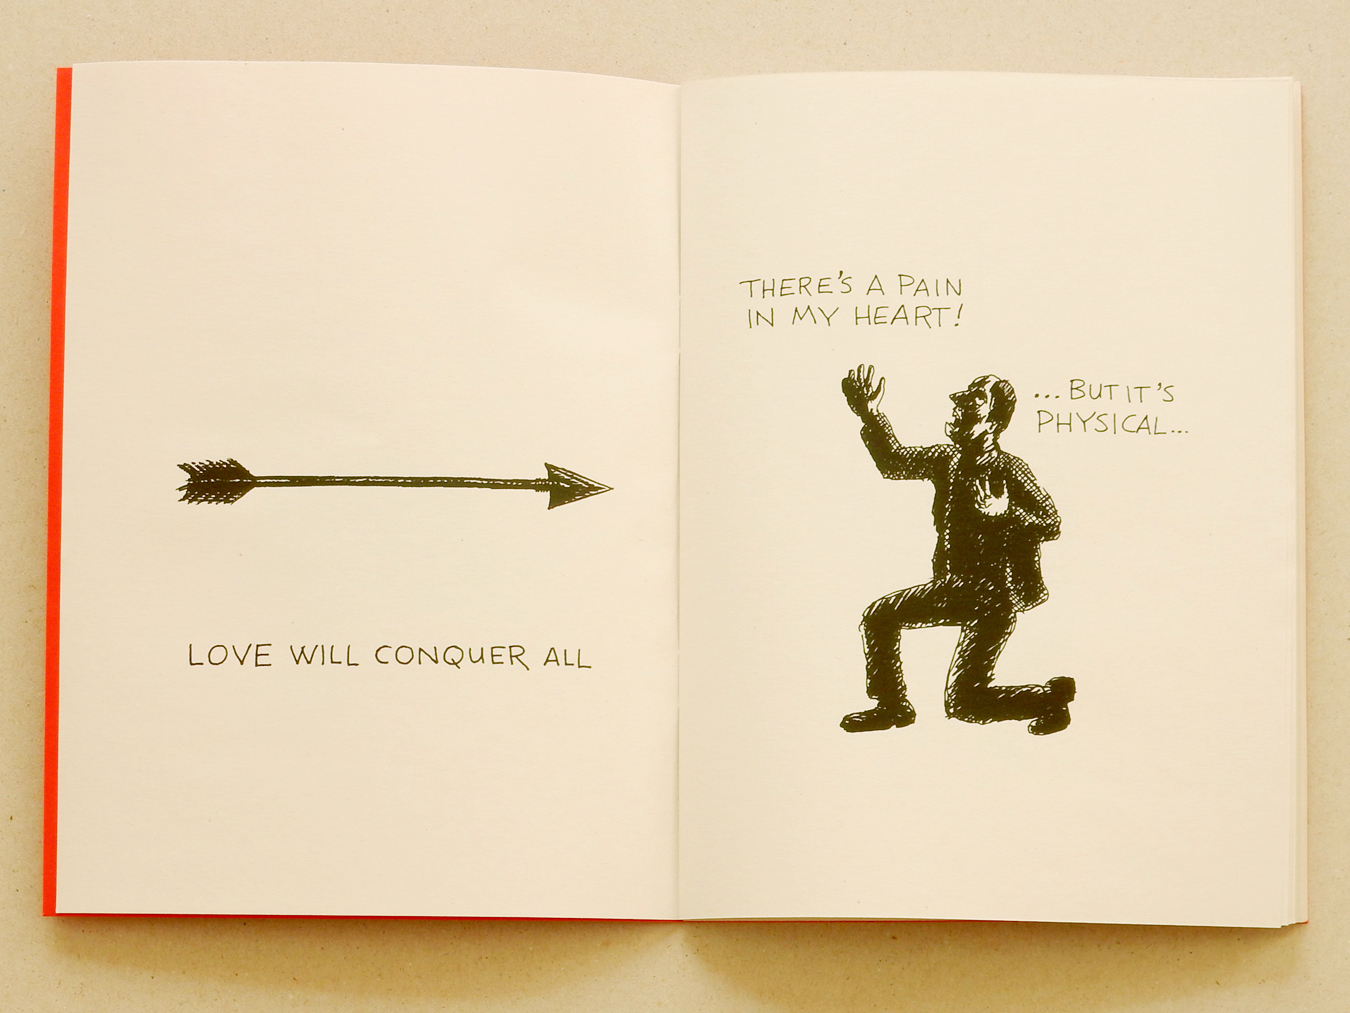 LOVE WILL CONQUER ALL
THERE'S A PAIN
IN MY HEART!
...BUT IT'S
PHYSICAL...